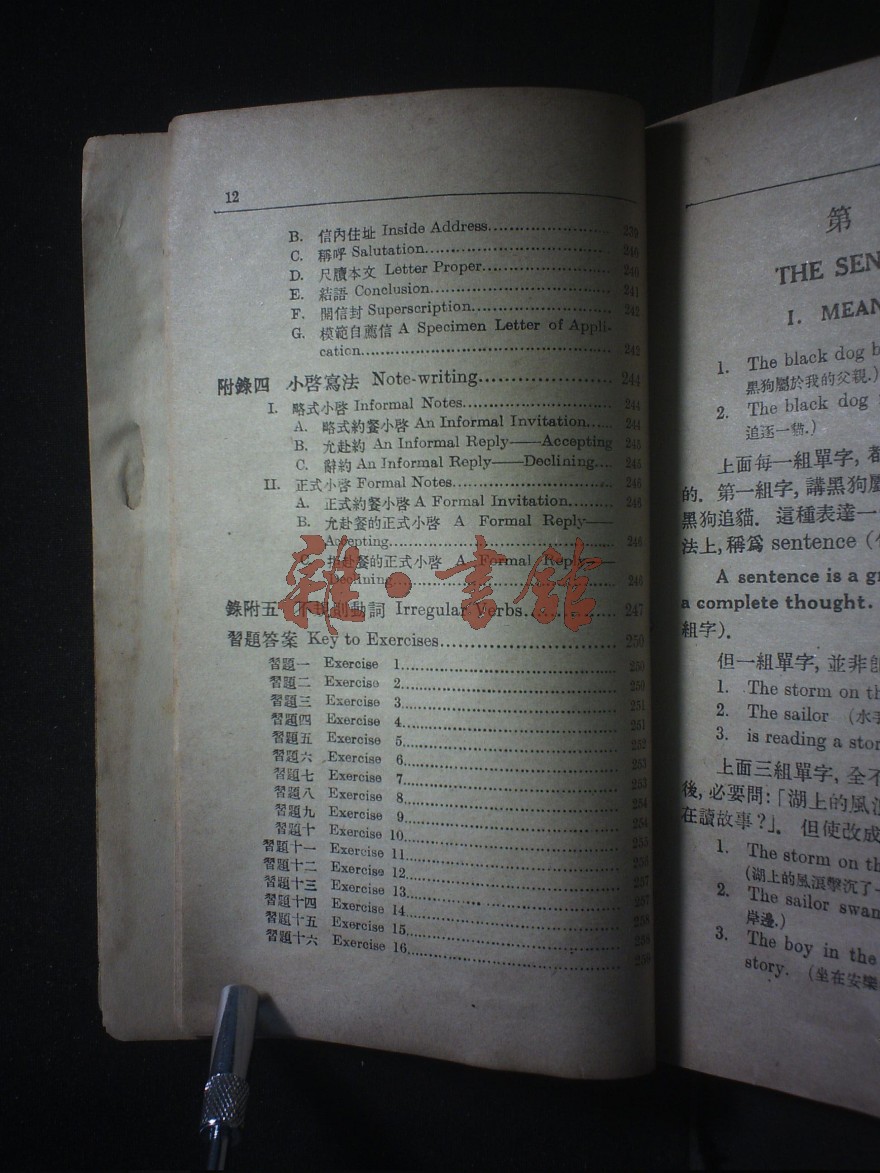 12
B. 信內住址 Inside Address........................ 239
C. 稱呼 Salutation.................................... 240
D. 尺牘本文 Letter Proper......................... 240
E. 結語 Conclusion................................... 241
F. 開信封 Superscription........................... 242
G. 模範自薦信 A Specimen Letter of Appli-
cation................................................ 242
附錄四 小啓寫法 Note-writing.................... 244
I. 略式小啓 Informal Notes......................... 244
A. 略式約餐小啓 An Informal Invitation...... 244
B. 允赴約 An Informal Reply——Accepting 245
C. 辭約 An Informal Reply——Declining.... 245
II. 正式小啓 Formal Notes.......................... 246
A. 正式約餐小啓 A Formal Invitation.......... 246
B. 允赴餐的正式小啓 A Formal Reply——
Accepting............................................ 246
C. 拒赴餐的正式小啓 A Formal Reply——
Declining............................................ 246
錄附五 不規則動詞 Irregular Verbs............... 247
習題答案 Key to Exercises............................ 250
習題一 Exercise 1.................................... 250
習題二 Exercise 2.................................... 250
習題三 Exercise 3.................................... 251
習題四 Exercise 4.................................... 251
習題五 Exercise 5.................................... 252
習題六 Exercise 6.................................... 253
習題七 Exercise 7.................................... 253
習題八 Exercise 8.................................... 254
習題九 Exercise 9.................................... 254
習題十 Exercise 10.................................. 255
習題十一 Exercise 11............................... 256
習題十二 Exercise 12............................... 257
習題十三 Exercise 13............................... 257
習題十四 Exercise 14............................... 258
習題十五 Exercise 15............................... 258
習題十六 Exercise 16............................... 259
雜·書館
第
THE SEN
I. MEAN
1. The black dog b
黑狗屬於我的父親.)
2. The black dog
追逐一貓.)
上面每一組單字, 者
的. 第一組字, 講黑狗屬
黑狗追貓. 這種表達一
法上, 稱爲 sentence (
A sentence is a gr
a complete thought.
組字).
但一組單字, 並非卽
1. The storm on th
2. The sailor (水手
3. is reading a stor
上面三組單字, 全不
後, 必要問:「湖上的風浪
在讀故事?」. 但使改成
1. The storm on th
(湖上的風浪擊沉了一
2. The sailor swan
岸邊.)
3. The boy in the
story. (坐在安樂